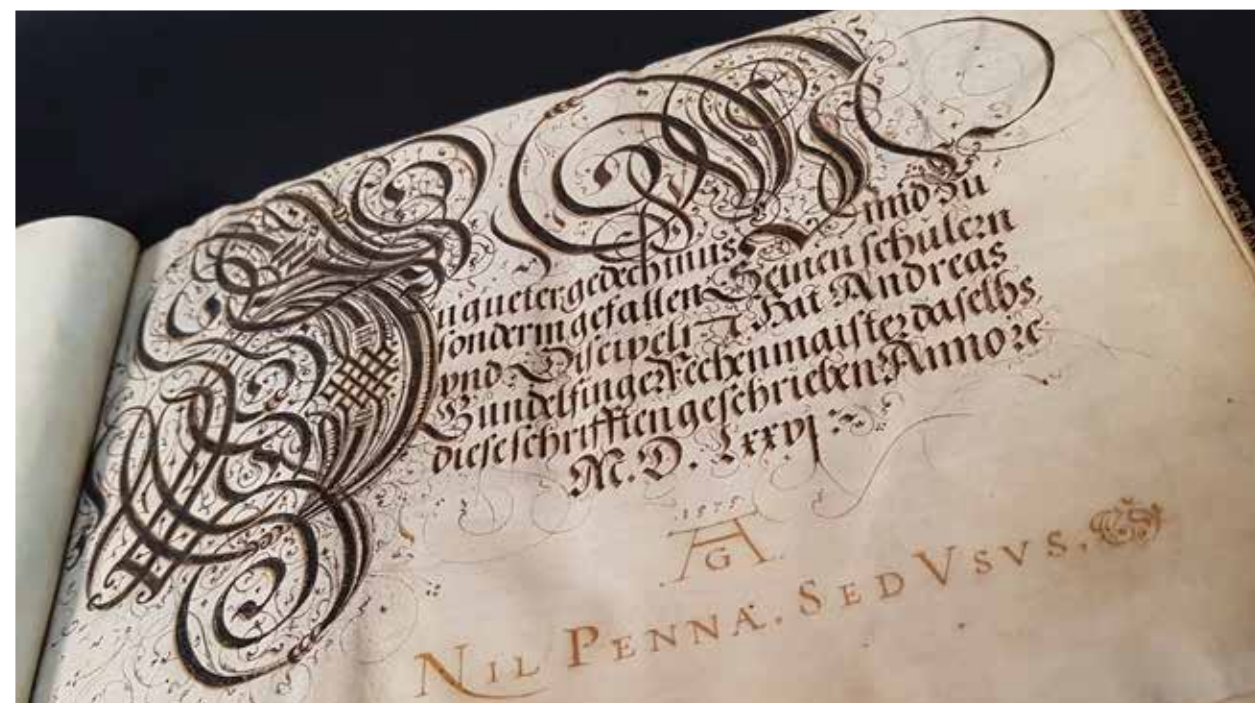 Zu gueter gedechtnus
und zu
sonderm gefallen Seinen schulern
vnd Discipeln Hat Andreas
Gundelfinger Rechenmaister daselbs
diese schrifften geschrieben Anno ꝛc
M.D.Lxxvj
.1575.
AG
NIL PENNÆ. SED VSVS.